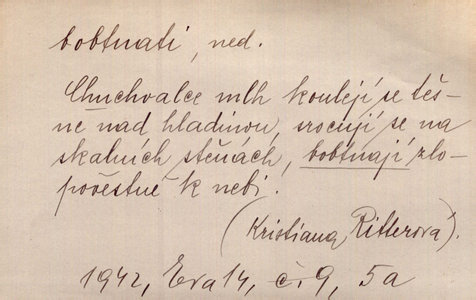 bobtnati, ned.
Chuchvalce mlh koulejí se těs-
ně nad hladinou, srocují se na
skalních stěnách, bobtnají zlo-
pověstně k nebi.
(Kristiana Ritterová).
1942, Eva 14, č. 9, 5a